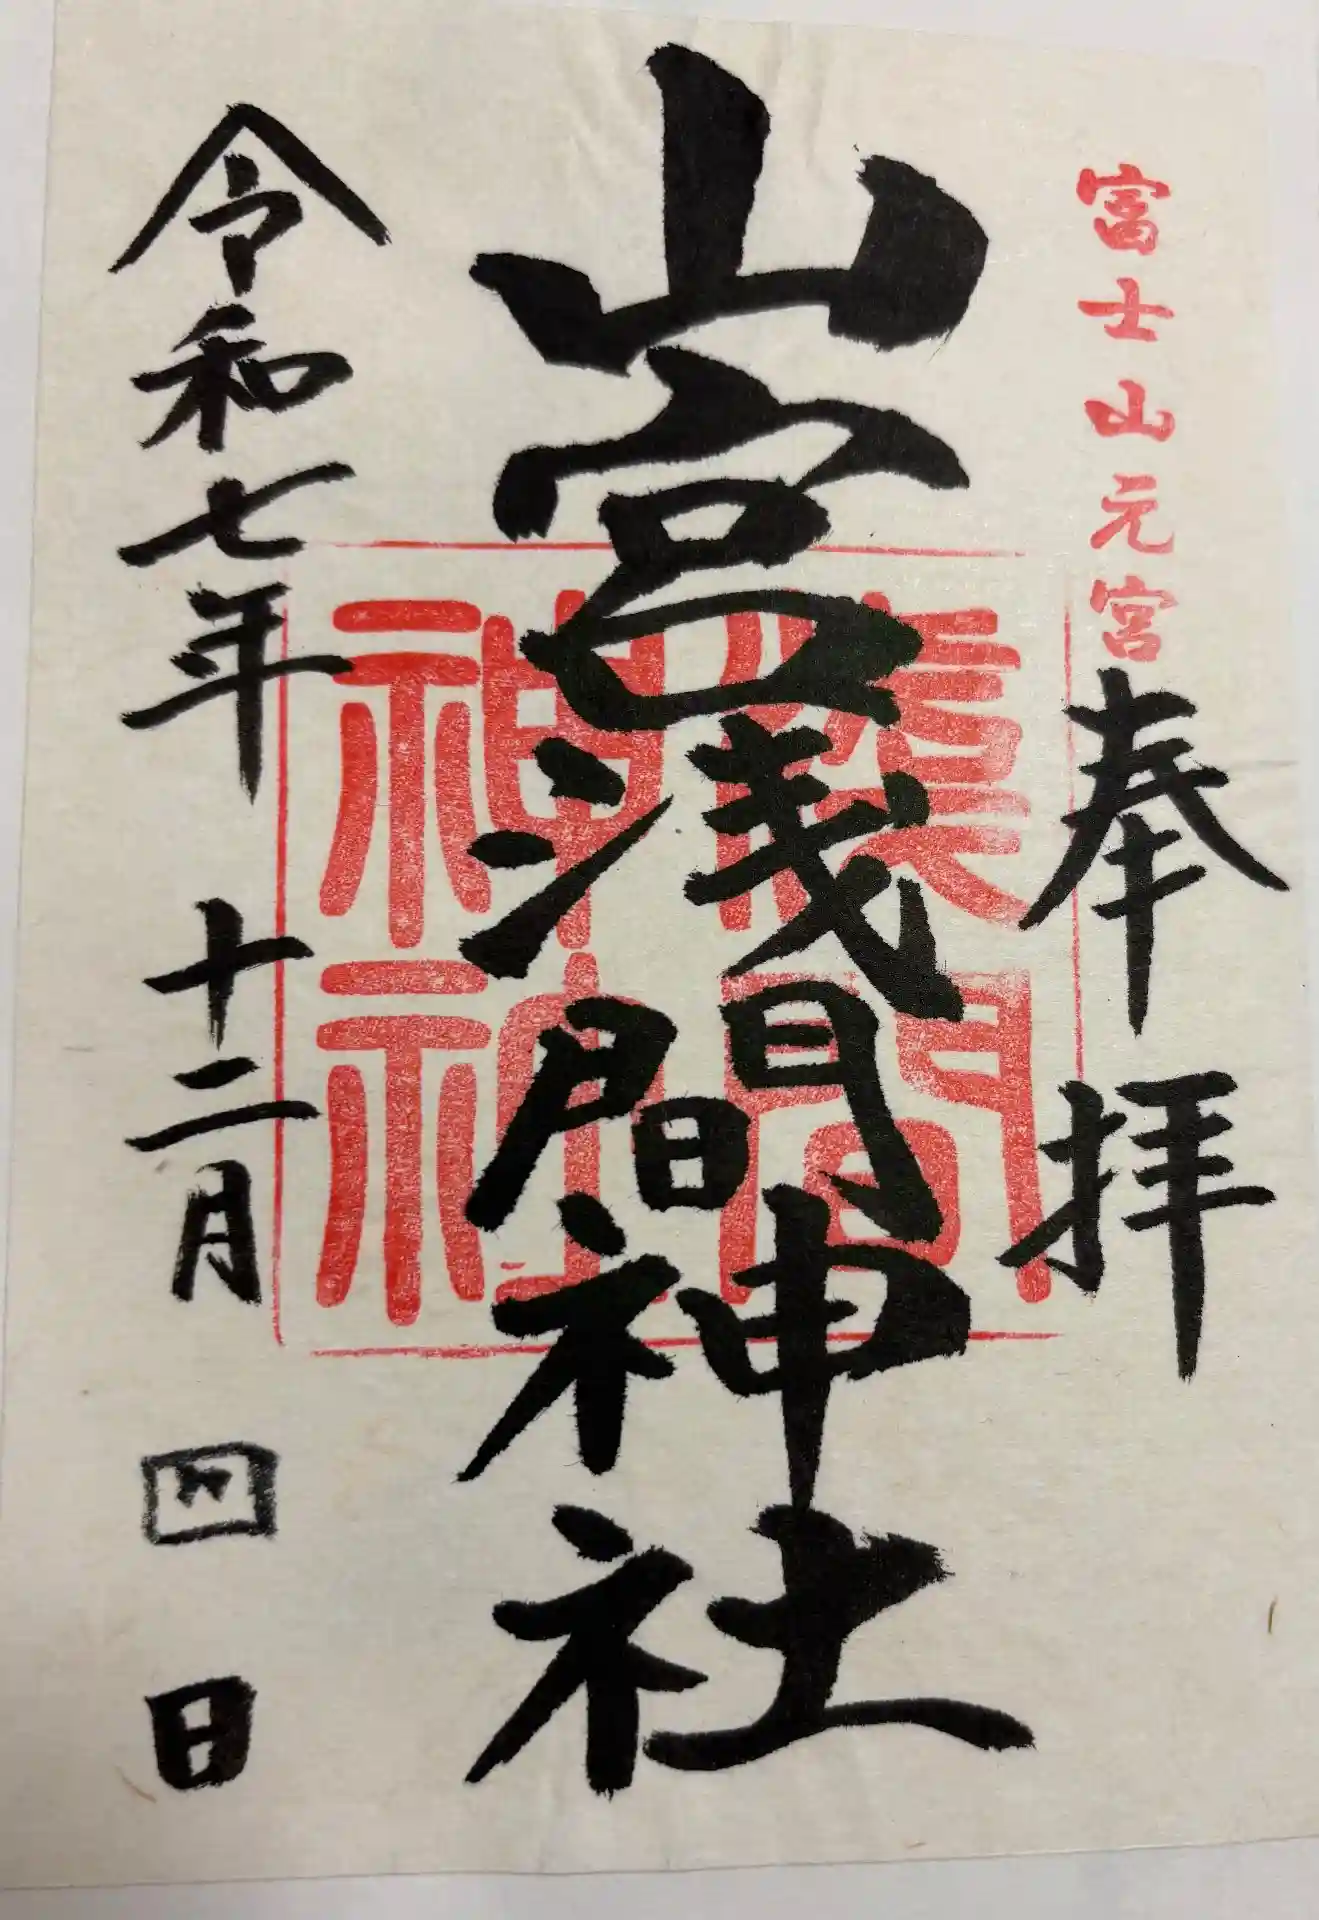 富士山元宮
奉拝
山宮浅間神社
淺間
神社
令和七年 十二月 四 日